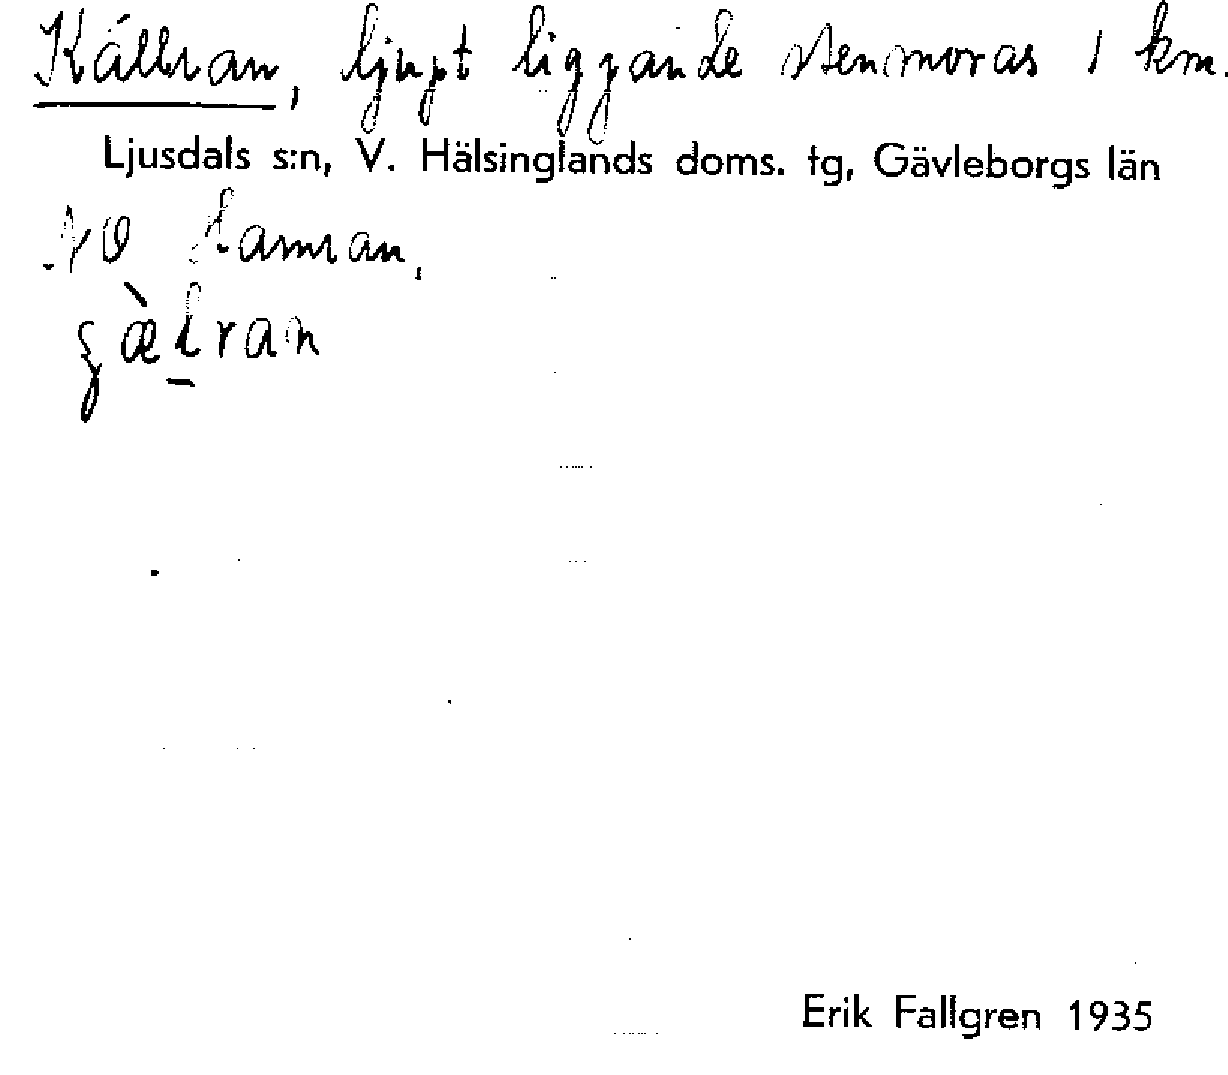 Källran, ljupt liggande stenmoras 1 km.
Ljusdals s:n, V. Hälsinglands doms. tg, Gävleborgs län
NO Hamran,
Erik Fallgren 1935